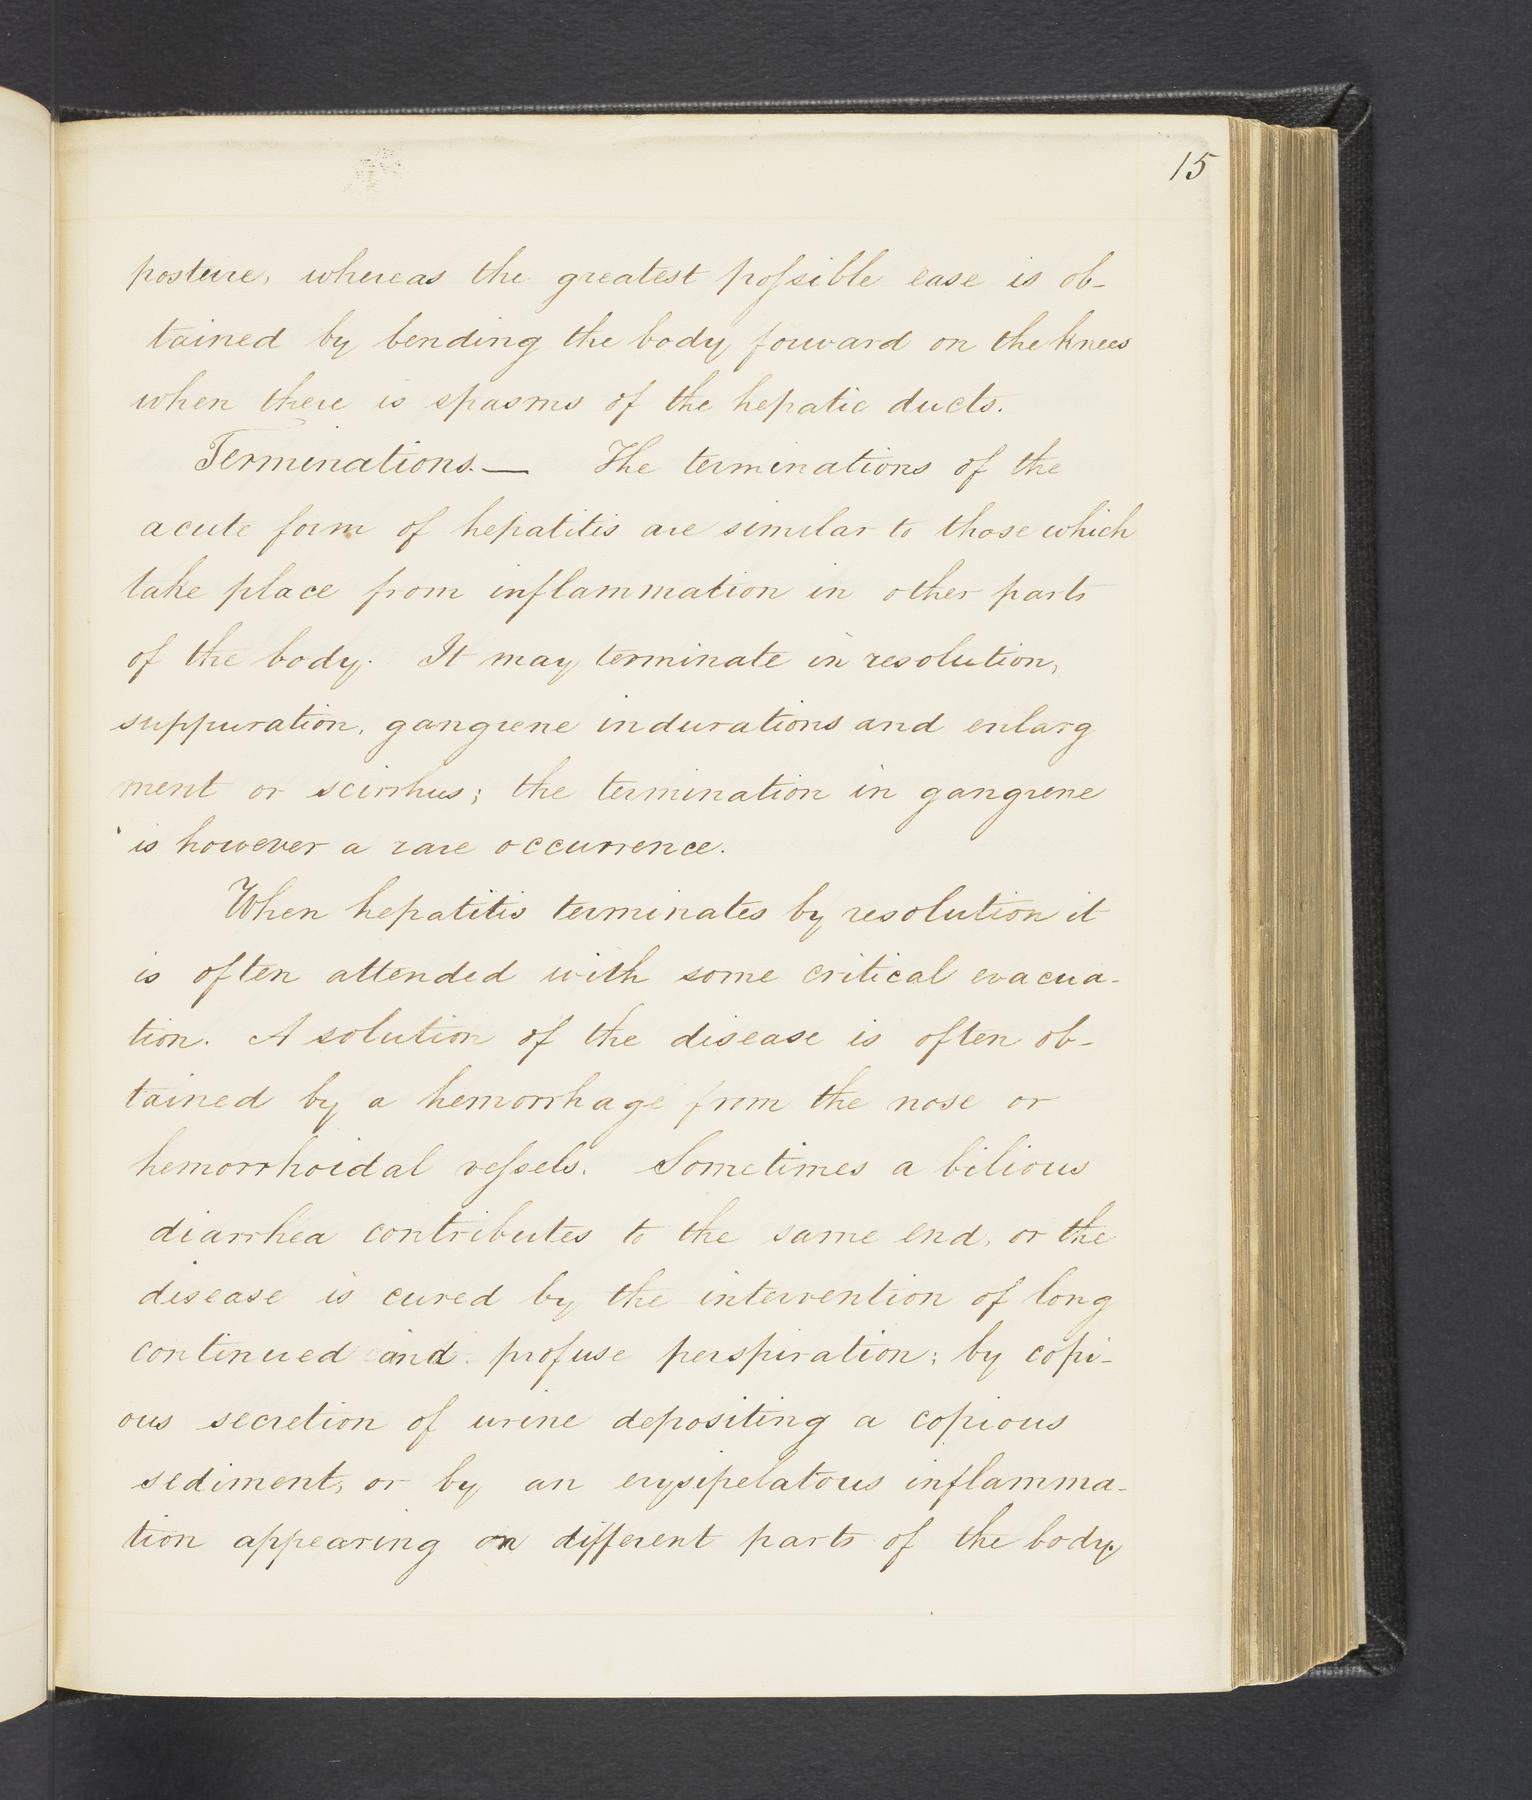 15
posture, whereas the greatest poſsible ease is ob-
tained by bending the body forward on the knees
when there is spasms of the hepatic ducts.
Terminations.— The terminations of the
acute form of hepatitis are similar to those which
take place from inflammation in other parts
of the body. It may terminate in resolution,
suppuration, gangrene indurations and enlarg
ment or scirrhus; the termination in gangrene
is however a rare occurrence.
When hepatitis terminates by resolution it
is often attended with some critical evacua-
tion. A solution of the disease is often ob-
tained by a hemorrhage from the nose or
hemorrhoidal veſsels. Sometimes a bilious
diarrhea contributes to the same end, or the
disease is cured by the intervention of long
continued and profuse perspiration; by copi-
ous secretion of urine depositing a copious
sediment, or by an erysipelatous inflamma-
tion appearing on different parts of the body.